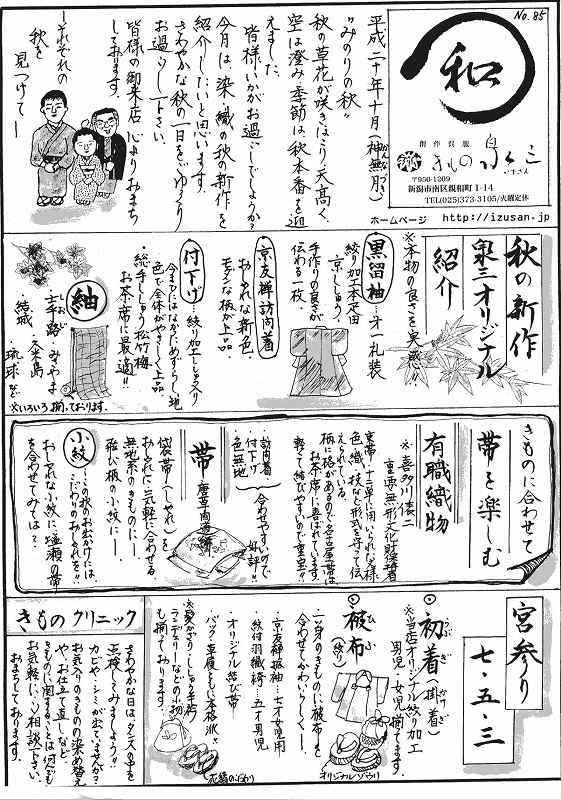 No.85
和
創作呉服
きもの泉三
いずさん
〒950-1209
新潟市南区親和町1-14
TEL(025)373-3105/火曜定休
ホームページ http://izusan.jp
平成二十年十月(神無月)
かんなづき
"みのりの秋"
秋の草花が咲きほこり、天高く、
空は澄み、季節は、秋本番を迎
えました。
皆様、いかがお過ごしでしょうか?
今月は、染・織の秋の新作を
紹介したいと思います。
さわやかな秋の一日をごゆっくり
お過ごし下さい。
皆様の御来店心よりおまち
しております。
―それぞれの
秋を
見つけて―
秋の新作
泉三オリジナル
紹介
※本物の良さを実感!!
黒留袖…オ一礼装
絞り加工本疋田
京ししゅう
手作りの良さが
伝わる一枚。
京友禅訪問着
おしゃれな新色、
モダンな柄が上品
付下げ…絞り加工ししゅう入り
今までにはなかためずらしい地
色で全体がやさしく上品
・総手ししゅう松竹梅
お茶席に最適!!
紬
・士手路・みやま
・結城・久米島
・琉球など
※いろいろ揃っております。
きものに合わせて
帯を楽しむ
有職織物
※喜多川俵二
重要無形文化財保持者
京帯・十二単に用いられた文様
色・織・技など形式を守って伝
えられている。
柄に格があるので名古屋帯は
お茶席に喜ばれています。
軽くて結びやすいので重宝!!
・訪問着
・付下げ
・色無地
合わせやすいので
好評!!
帯
唐草向蝶
袋帯(しゃれ)を
おしゃれに気軽に合わせる
無地系のきものに―
飛び柄の小紋に―
小紋
・この秋のお出かけには、
こだわりのおしゃれを!!
おしゃれな小紋に塩瀬の帯
を合わせてみては?
宮参り
七・五・三
初着(掛着)
うぶぎ かけぎ
※当店オリジナル絞り加工
男児・女児揃てます。
被布
ひふ
(絞り)
二つ身のきものに被布をと
合わせてかわいらしく―。
オリジナルゾウリ
・京友禅振袖…七才女児用
・紋付羽織袴…五才男児
・オリジナル結び帯
・バック・草履ともに本格派!!
※髪かざり・ししゅう半衿
ランジェリーなどの小物
も揃ております。
花緒のぞうり
きものクリニック
さわやかな日は、タンスの中を
点検してみましょう!!
カビや、シミが出ていませんか?
お気入りのきものの染め替え
や、お仕立て直しなど
きものに関することは何んでも
お気軽にご相談下さい。
おまちしております。